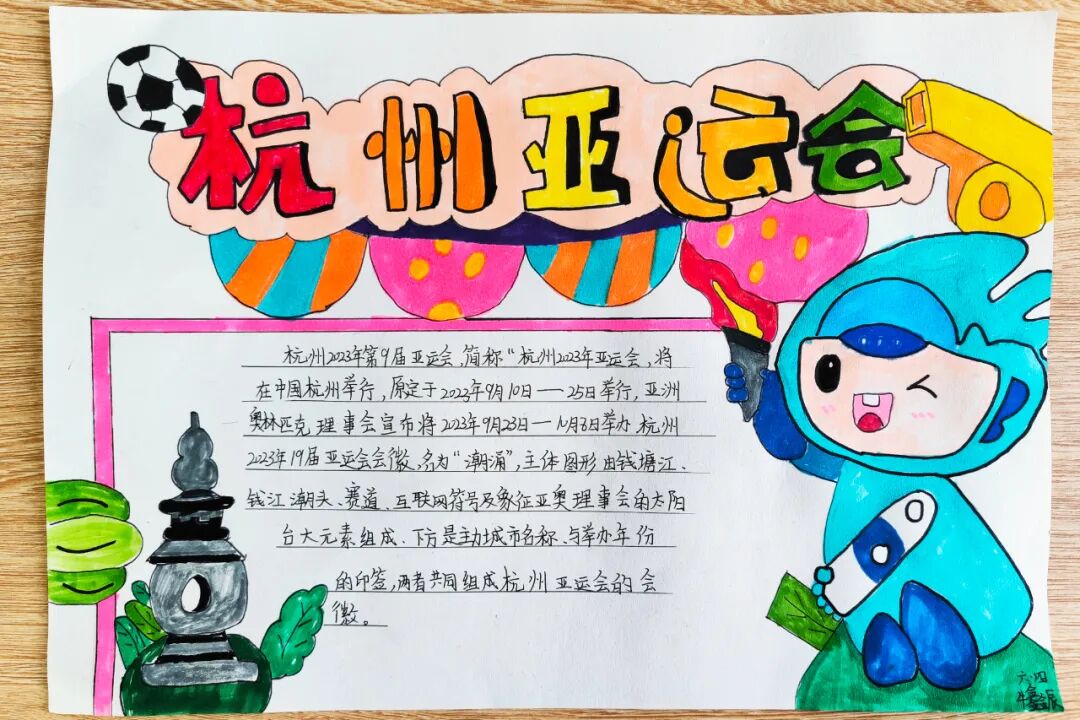 杭州亚运会
杭州2023年第9届亚运会,简称“杭州2023年亚运会,将
在中国杭州举行,原定于2022年9月10日——25日举行,亚洲
奥林匹克理事会宣布将2023年9月23日—10月8日举办.杭州
2023年19届亚运会会徽、名为“潮涌”,主体图形由钱塘江、
钱江潮头、赛道、互联网符号及象征亚奥理事会的太阳
台大元素组成、下方是主办城市名称、与举办年份
的印签,两者共同组成杭州亚运会的会
徽。
六.四